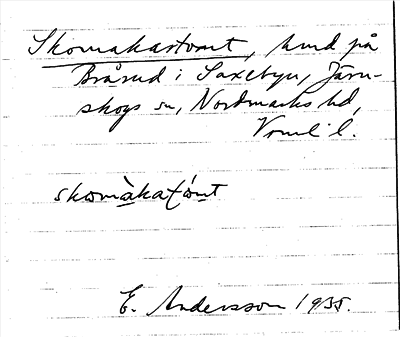 Skomakartomt, hmd på
Bråred i Saxebyn, Järn-
skogs sn, Nordmarks hd,
Vrml. l.
skomàkat́ómt
E. Andersson 1935.